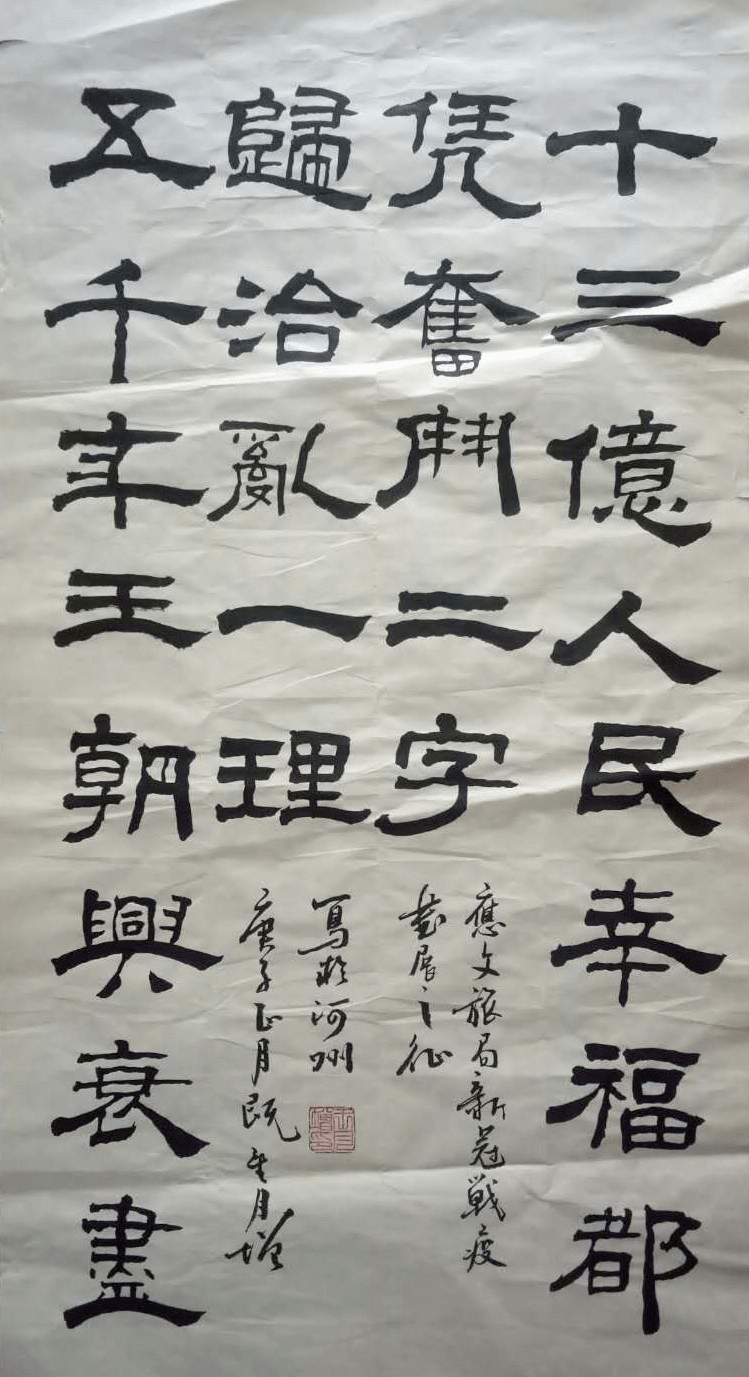 十三億人民幸福都
凭奮鬥二字
應文旅局新冠戰疫
書展之征
五千年王朝興衰盡
歸治亂一理
寫於河州
庚子正月既望月增